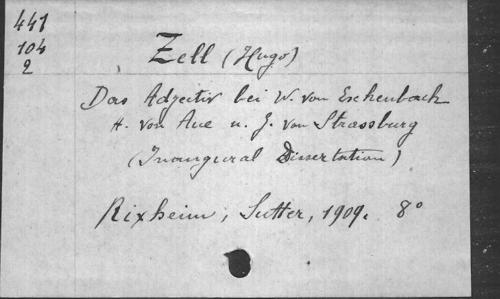 441
104
2
Zell (Hugo)
Das Adjectiv bei W. von Eschenbach
H. von Aue u. G. von Strassburg
(Inaugural Dissertation)
Rixheim, Sutter, 1909. 8°